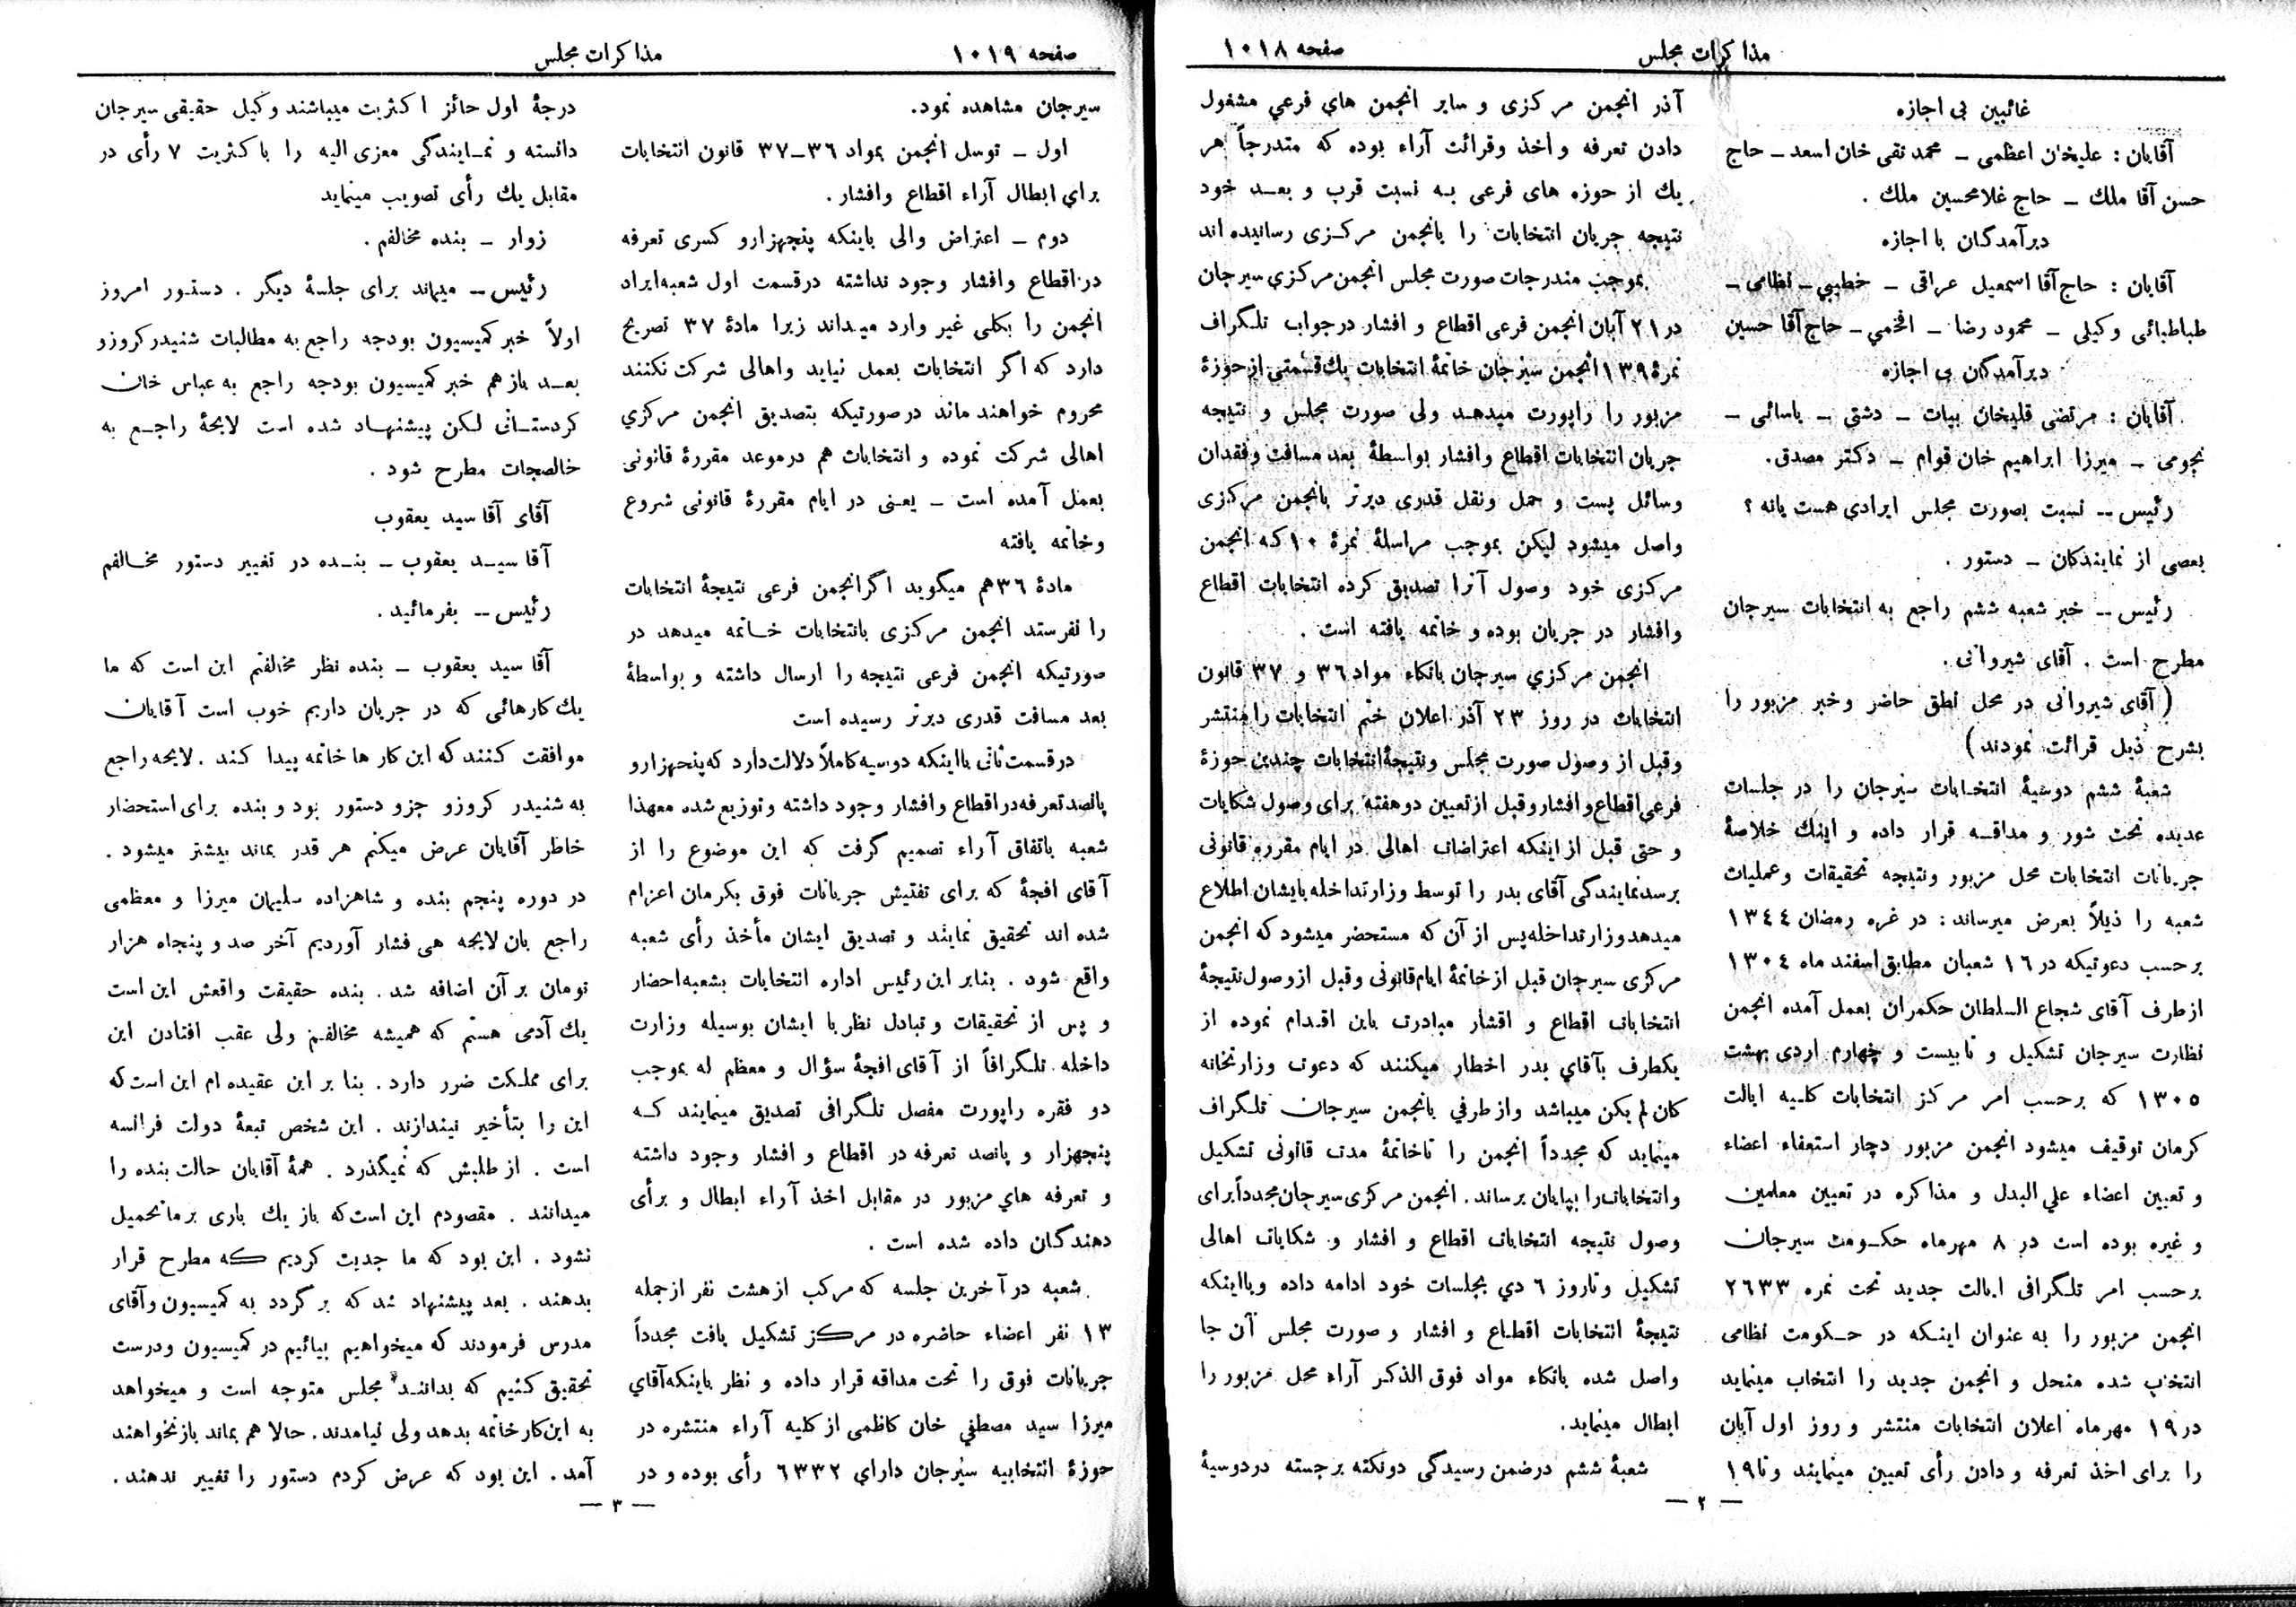 مذاکرات مجلس
صفحه ۱۰۱۸
غائبین بی اجازه
آقایان : علیخان اعظمی ـ محمد تقی خان اسعد ـ حاج
حسن آقا ملك ـ حاج غلامحسین ملك .
دیرآمدگان با اجازه
آقایان : حاج آقا اسمعیل عراقی ـ خطیبي ـ نظامی ـ
طباطبائی وکیلی ـ محمود رضا ـ افخمي ـ حاج آقا حسین
دیرآمدگان بی اجازه
آقایان : مرتضی قلیخان بیات ـ دشتی ـ یاسائی ـ
نجومی ـ میرزا ابراهیم خان قوام ـ دکتر مصدق.
رئیس ــ نسبت بصورت مجلس ایرادی هست یانه ؟
بعضی از نمایندگان ـ دستور .
رئیس ــ خبر شعبه ششم راجع به انتخابات سیرجان
مطرح است . آقای شیروانی .
( آقای شیروانی در محل نطق حاضر وخبر مزبور را
بشرح ذیل قرائت نمودند)
شعبهٔ ششم دوسیهٔ انتخابات سیرجان را در جلسات
عدیده تحت شور و مداقه قرار داده و اینك خلاصهٔ
جریانات انتخابات محل مزبور ونتیجه تحقیقات وعملیات
شعبه را ذیلاً بعرض میرساند : در غره رمضان ۱۳٤٤
برحسب دعوتیکه در ۱۶ شعبان مطابق اسفند ماه ۱۳۰٤
ازطرف آقای شجاع السلطان حکمران بعمل آمده انجمن
نظارت سیرجان تشکیل و تابیست و چهارم اردی بهشت
۱۳۰٥ که برحسب امر مرکز انتخابات کلیه ایالت
کرمان توقیف میشود انجمن مزبور دچار استعفاء اعضاء
و تعیین اعضاء علي البدل و مذاکره در تعیین معلمین
و غیره بوده است در ۸ مهرماه حکومت سیرجان
برحسب امر تلگرافی ایالت جدید تحت نمره ۲۶۳۳
انجمن مزبور را به عنوان اینکه در حکومت نظامی
انتخاب شده منحل و انجمن جدید را انتخاب مینماید
در۱۹ مهرماه اعلان انتخابات منتشر و روز اول آبان
را برای اخذ تعرفه و دادن رأی تعیین مینمایند و تا۱۹
آذر انجمن مرکزی و سایر انجمن هاي فرعي مشغول
دادن تعرفه و اخذ وقرائت آراء بوده که متدرجاً هر
یك از حوزه های فرعی به نسبت قرب و بعد خود
نتیجه جریان انتخابات را بانجمن مرکزی رسانیده اند
بموجب مندرجات صورت مجلس انجمن مرکزی سیرجان
در ۲۱ آبان انجمن فرعی اقطاع و افشار درجواب تلگراف
نمرهٔ ۱۳۹ انجمن سیرجان خاتمهٔ انتخابات یك قسمتی از حوزهٔ
مزبور را راپورت میدهد ولی صورت مجلس و نتیجه
جریان انتخابات اقطاع وافشار بواسطهٔ بعد مسافت وفقدان
وسائل پست و حمل ونقل قدری دیرتر بانجمن مرکزی
واصل میشود لیکن بموجب مراسلهٔ نمرهٔ ۱۰ که انجمن
مرکزی خود وصول آنرا تصدیق کرده انتخابات اقطاع
وافشار در جریان بوده و خاتمه یافته است .
انجمن مرکزي سیرجان باتکاء مواد ۳۶ و ۳۷ قانون
انتخابات در روز ۲۳ آذر اعلان ختم انتخابات را منتشر
وقبل از وصول صورت مجلس ونتیجهٔ انتخابات چندین حوزهٔ
فرعی اقطاع وافشار وقبل ازتعیین دو هفته برای وصول شکایات
و حتی قبل از اینکه اعتراضات اهالی در ایام مقرره قانونی
برسد نمایندگی آقای بدر را توسط وزارتداخله بایشان اطلاع
میدهد وزارتداخله پس از آن که مستحضر میشود که انجمن
مرکزی سیرجان قبل از خاتمهٔ ایام قانونی وقبل ازوصول نتیجهٔ
انتخابات اقطاع و افشار مبادرت باین اقدام نموده از
یکطرف بآقاي بدر اخطار میکنند که دعوت وزارتخانه
کان لم یکن میباشد واز طرفي بانجمن سیرجان تلگراف
مینماید که مجدداً انجمن را تاخاتمهٔ مدت قانونی تشکیل
وانتخابات را بپایان برساند . انجمن مرکزی سیرجان مجدداً برای
وصول نتیجه انتخابات اقطاع و افشار و شکایات اهالی
تشکیل وتاروز ۶ دي بجلسات خود ادامه داده و بااینکه
نتیجهٔ انتخابات اقطاع و افشار و صورت مجلس آن جا
واصل شده باتکاء مواد فوق الذکر آراء محل مزبور را
ابطال مینماید.
شعبهٔ ششم درضمن رسیدگی دونکته برجسته دردوسیهٔ
— ۲ —
صفحه ۱۰۱۹
مذاکرات مجلس
سیرجان مشاهده نمود.
اول ـ توسل انجمن بمواد ۳۶ـ۳۷ قانون انتخابات
براي ابطال آراء اقطاع وافشار .
دوم ـ اعتراض والی باینکه پنجهزارو کسری تعرفه
در اقطاع وافشار وجود نداشته درقسمت اول شعبه ایراد
انجمن را بکلی غیر وارد میداند زیرا مادهٔ ۳۷ تصریح
دارد که اگر انتخابات بعمل نیاید واهالی شرکت نکنند
محروم خواهند ماند درصورتیکه بتصدیق انجمن مرکزي
اهالی شرکت نموده و انتخابات هم درموعد مقررهٔ قانونی
بعمل آمده است ـ یعنی در ایام مقررهٔ قانونی شروع
وخاتمه یافته
مادهٔ ۳۶ هم میگوید اگرانجمن فرعی نتیجهٔ انتخابات
را نفرستد انجمن مرکزی بانتخابات خاتمه میدهد در
صورتیکه انجمن فرعی نتیجه را ارسال داشته و بواسطهٔ
بعد مسافت قدری دیرتر رسیده است
درقسمت ثانی بااینکه دوسیه کاملاً دلالت دارد که پنجهزارو
پانصد تعرفه در اقطاع وافشار وجود داشته وتوزیع شده معهذا
شعبه باتفاق آراء تصمیم گرفت که این موضوع را از
آقای افجهٔ که برای تفتیش جریانات فوق بکرمان اعزام
شده اند تحقیق نمایند و تصدیق ایشان مأخذ رأی شعبه
واقع شود . بنابر این رئیس اداره انتخابات بشعبه احضار
و پس از تحقیقات و تبادل نظر با ایشان بوسیله وزارت
داخله تلگرافاً از آقای افجهٔ سؤال و معظم له بموجب
دو فقره راپورت مفصل تلگرافی تصدیق مینمایند که
پنجهزار و پانصد تعرفه در اقطاع و افشار وجود داشته
و تعرفه هاي مزبور در مقابل اخذ آراء ابطال و برأی
دهندگان داده شده است .
شعبه در آخرین جلسه که مرکب از هشت نفر ازجمله
۱۳ نفر اعضاء حاضره در مرکز تشکیل یافت مجدداً
جریانات فوق را تحت مداقه قرار داده و نظر باینکه آقاي
میرزا سید مصطفي خان کاظمی از کلیه آراء منتشره در
حوزهٔ انتخابیه سیرجان داراي ۶۳۳۲ رأی بوده و در
درجهٔ اول حائز اکثریت میباشند وکیل حقیقی سیرجان
دانسته و نمایندگی معزی الیه را باکثریت ۷ رأی در
مقابل یك رأی تصویب مینماید
زوار ـ بنده مخالفم .
رئیس ــ میماند برای جلسهٔ دیگر . دستور امروز
اولاً خبر کمیسیون بودجه راجع به مطالبات شنیدر کروزو
بعد باز هم خبر کمیسیون بودجه راجع به عباس خان
کردستانی لکن پیشنهاد شده است لایحهٔ راجع به
خالصجات مطرح شود .
آقای آقا سید یعقوب
آقا سید یعقوب ـ بنده در تغییر دستور مخالفم
رئیس ــ بفرمائید .
آقا سید یعقوب ـ بنده نظر مخالفتم این است که ما
یك کارهائی که در جریان داریم خوب است آقایان
موافقت کنند که این کار ها خاتمه پیدا کند . لایحه راجع
به شنیدر کروزو جزو دستور بود و بنده برای استحضار
خاطر آقایان عرض میکنم هر قدر بماند بیشتر میشود .
در دوره پنجم بنده و شاهزاده سلیمان میرزا و معظمی
راجع بان لایحه هی فشار آوردیم آخر صد و پنجاه هزار
تومان بر آن اضافه شد . بنده حقیقت واقعش این است
یك آدمی هستم که همیشه مخالفم ولی عقب افتادن این
برای مملکت ضرر دارد . بنا بر این عقیده ام این است که
این را بتأخیر نیندازند . این شخص تبعهٔ دولت فرانسه
است . از طلبش که نمیگذرد . همهٔ آقایان حالت بنده را
میدانند . مقصودم این است که باز یك باری بر ما تحمیل
نشود . این بود که ما جدیت کردیم که مطرح قرار
بدهند . بعد پیشنهاد شد که بر گردد به کمیسیون وآقای
مدرس فرمودند که میخواهیم بیائیم در کمیسیون ودرست
تحقیق کنیم که بدانند مجلس متوجه است و میخواهد
به این کار خاتمه بدهد ولی نیامدند . حالا هم بماند باز نخواهند
آمد . این بود که عرض کردم دستور را تغییر ندهند .
— ۳ —